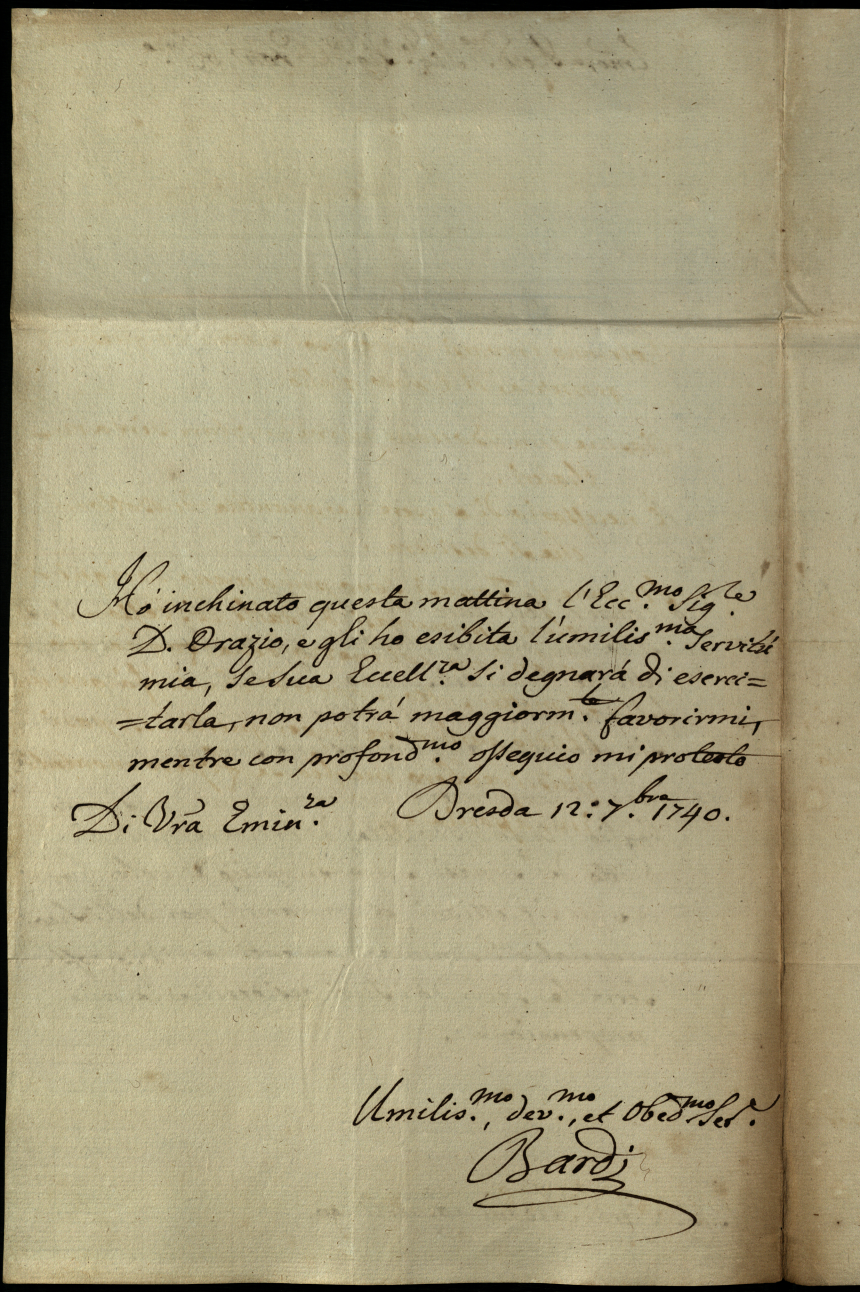 Hó inchinato questa mattina l'Ecc.mo Sig.le
D. Orazio, e gli ho esibita l'umilis.ma Servitú
mia, se sua Eccell.za si degnará di eserci=
=tarla, non potrá maggiorm.te favorirmi,
mentre con profond.mo ossequio mi protesto
Di Vra Emin.za Dresda 12: 7.bra 1740.
Umilis.mo, dev.mo, et Obed.mo Ser.e
Bardi